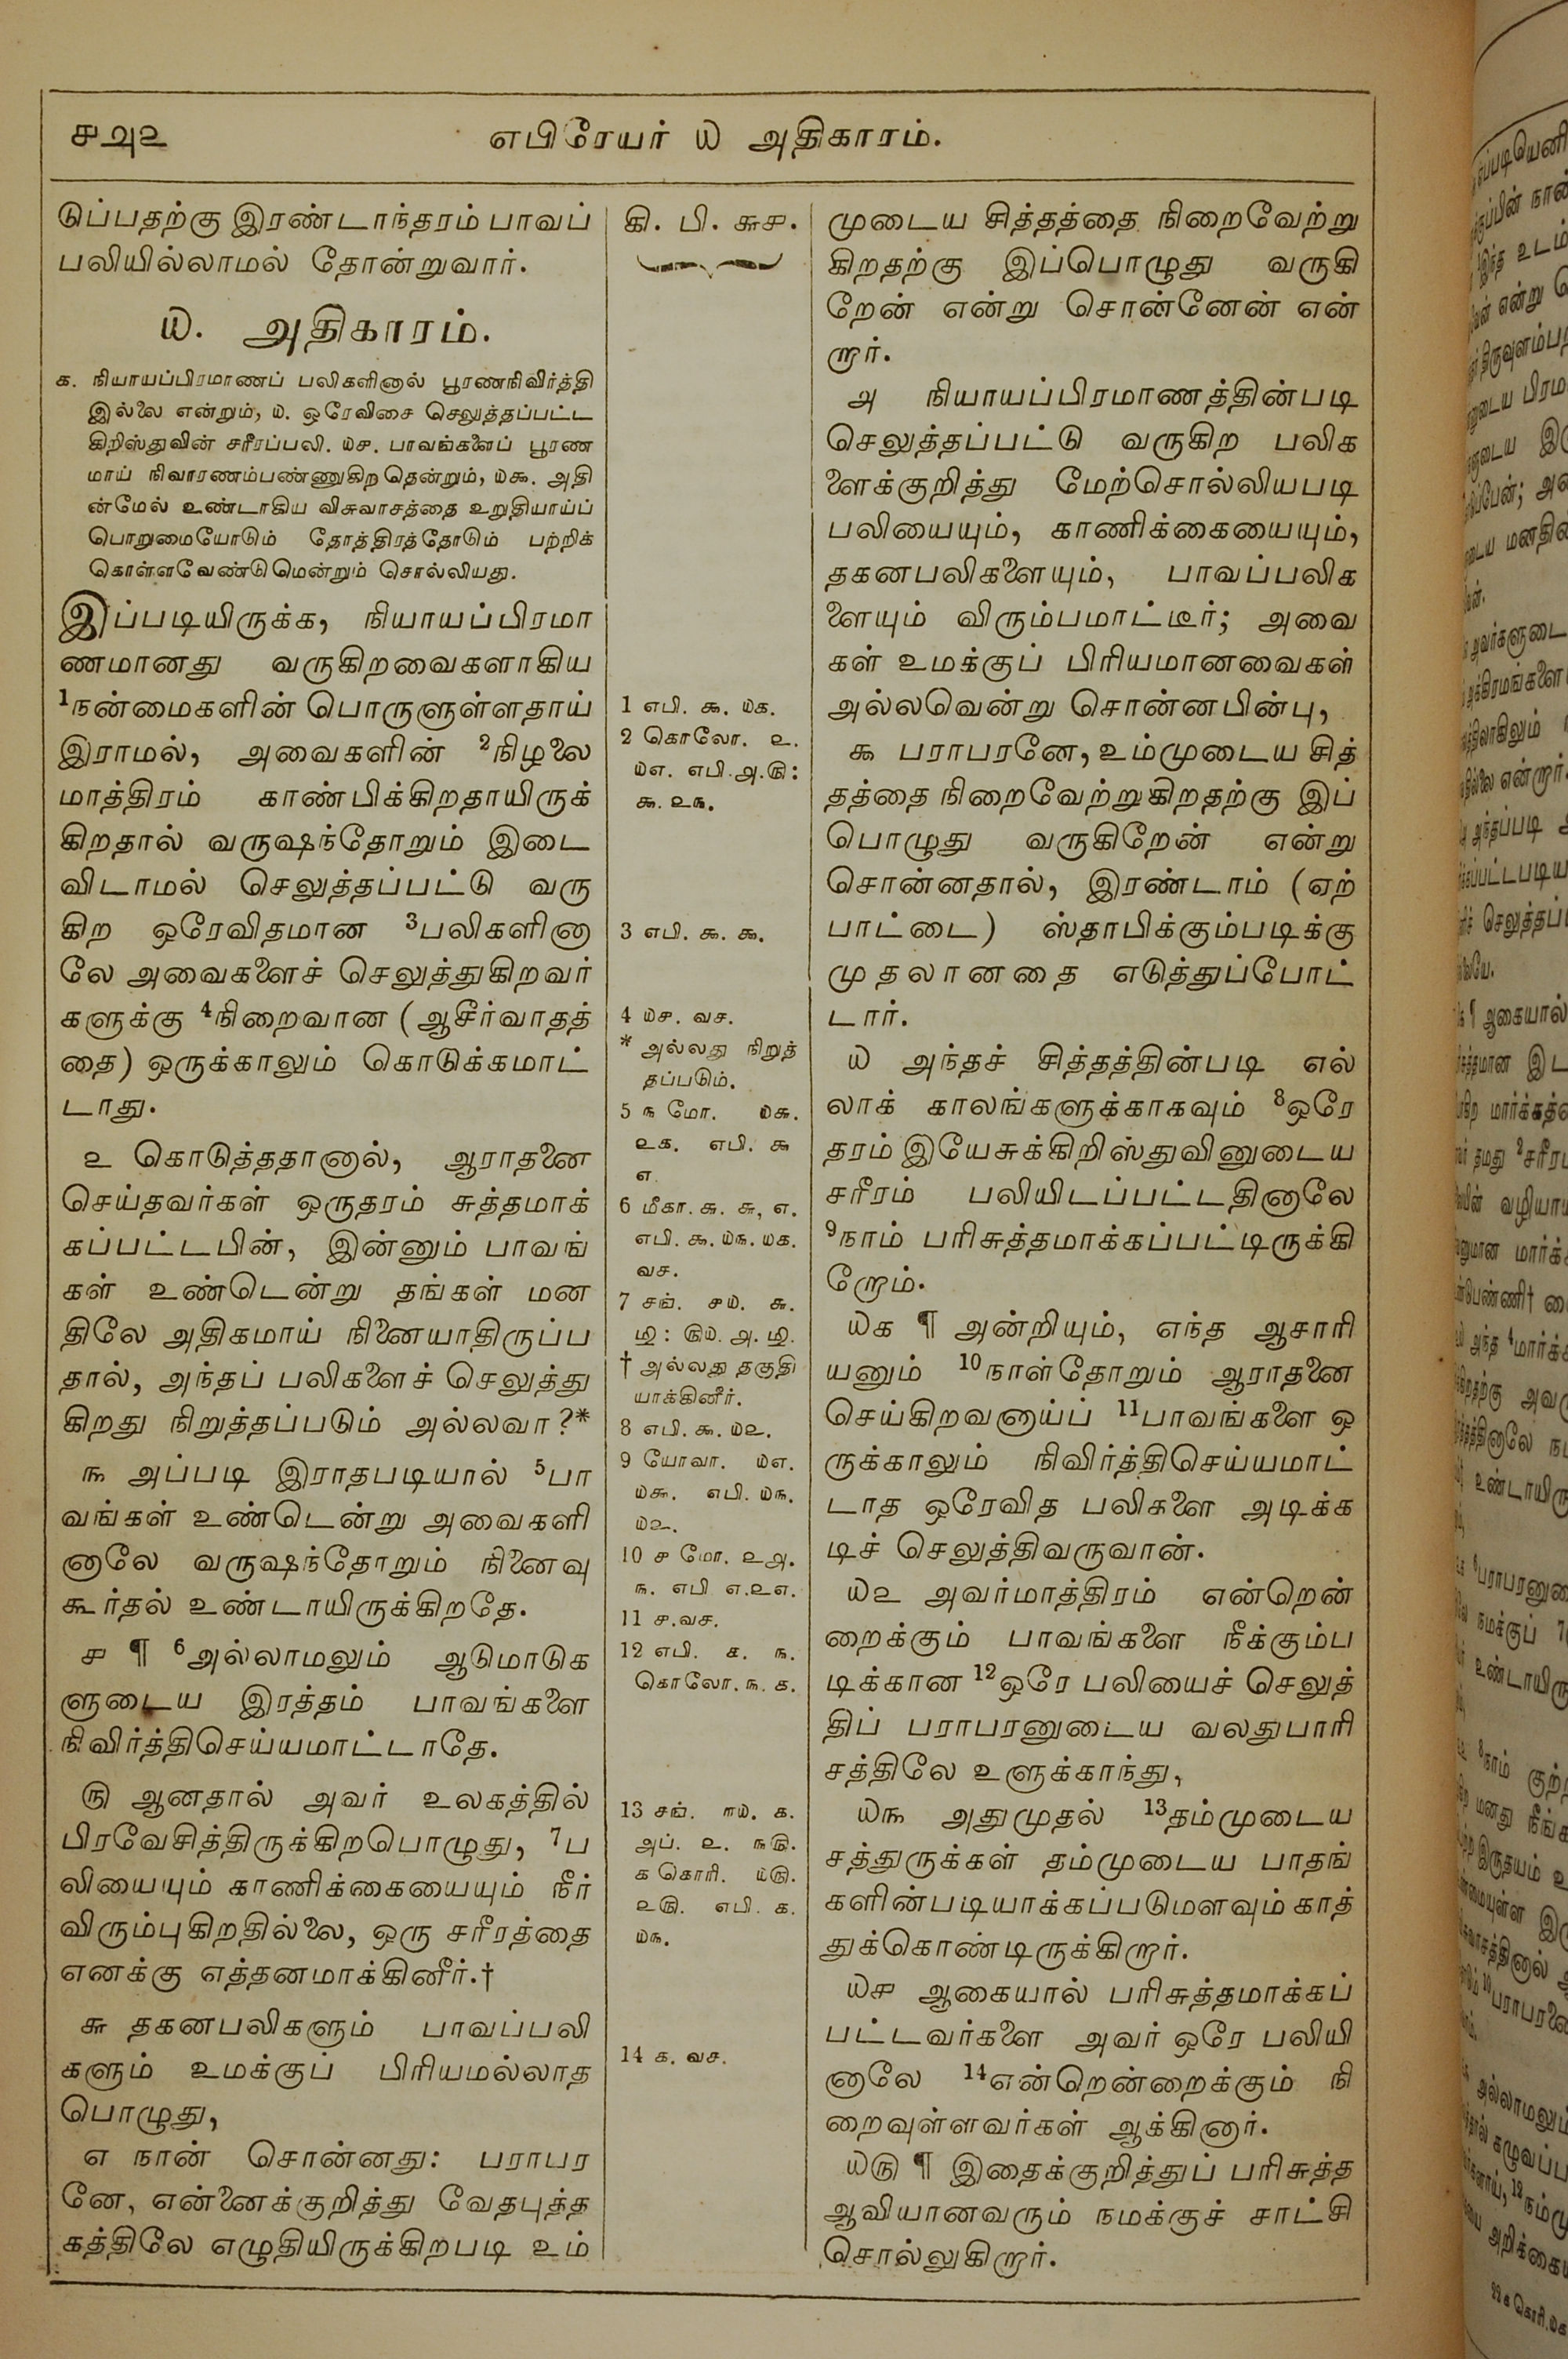 ௪௮௨
எபிரேயர் ௰ அதிகாரம்.
டுப்பதற்கு இரண்டாந்தரம் பாவப்
பலியில்லாமல் தோன்றுவார்.
௰. அதிகாரம்.
௧. நியாயப்பிரமாணப் பலிகளினால் பூரணநிவிர்த்தி
இல்லை என்றும், ௰. ஒரேவிசை செலுத்தப்பட்ட
கிறிஸ்துவின் சரீரப்பலி. ௰௪. பாவங்களைப் பூரண
மாய் நிவாரணம்பண்ணுகிறதென்றும், ௰௯. அதி
ன்மேல் உண்டாகிய விசுவாசத்தை உறுதியாய்ப்
பொறுமையோடும் தோத்திரத்தோடும் பற்றிக்
கொள்ளவேண்டுமென்றும் சொல்லியது.
இப்படியிருக்க, நியாயப்பிரமா
ணமானது வருகிறவைகளாகிய
1நன்மைகளின் பொருளுள்ளதாய்
இராமல், அவைகளின் 2நிழலை
மாத்திரம் காண்பிக்கிறதாயிருக்
கிறதால் வருஷந்தோறும் இடை
விடாமல் செலுத்தப்பட்டு வரு
கிற ஒரேவிதமான 3பலிகளினா
லே அவைகளைச் செலுத்துகிறவர்
களுக்கு 4நிறைவான (ஆசீர்வாதத்
தை) ஒருக்காலும் கொடுக்கமாட்
டாது.
௨ கொடுத்ததானால், ஆராதனை
செய்தவர்கள் ஒருதரம் சுத்தமாக்
கப்பட்டபின், இன்னும் பாவங்
கள் உண்டென்று தங்கள் மன
திலே அதிகமாய் நினையாதிருப்ப
தால், அந்தப் பலிகளைச் செலுத்து
கிறது நிறுத்தப்படும் அல்லவா?*
௩ அப்படி இராதபடியால் 5பா
வங்கள் உண்டென்று அவைகளி
னாலே வருஷந்தோறும் நினைவு
கூர்தல் உண்டாயிருக்கிறதே.
௪ ¶ 6அல்லாமலும் ஆடுமாடுக
ளுடைய இரத்தம் பாவங்களை
நிவிர்த்திசெய்யமாட்டாதே.
௫ ஆனதால் அவர் உலகத்தில்
பிரவேசித்திருக்கிறபொழுது, 7ப
லியையும் காணிக்கையையும் நீர்
விரும்புகிறதில்லை, ஒரு சரீரத்தை
எனக்கு எத்தனமாக்கினீர்.†
௬ தகனபலிகளும் பாவப்பலி
களும் உமக்குப் பிரியமல்லாத
பொழுது,
௭ நான் சொன்னது: பராபர
னே, என்னைக்குறித்து வேதபுத்த
கத்திலே எழுதியிருக்கிறபடி உம்
கி. பி. ௬௪.
1 எபி. ௯. ௰௧.
2 கொலோ. ௨.
௰௭. எபி.௮.௫:
௯. ௨௩.
3 எபி. ௯. ௯.
4 ௰௪. வச.
* அல்லது நிறுத்
தப்படும்.
5 ௩ மோ. ௰௬.
௨௧. எபி. ௯
௭.
6 மீகா. ௬. ௬, ௭.
எபி. ௯. ௰௩. ௰௧.
வச.
7 சங். ௪௰. ௬.
† அல்லது தகுதி
யாக்கினீர்.
8 எபி. ௯. ௰௨.
9 யோவா. ௰௭.
௰௯. எபி. ௰௩.
௰௨.
10 ௪ மோ. ௨௮.
௩. எபி ௭.௨௭.
11 ௪.வச.
12 எபி. ௧. ௩.
கொலோ. ௩. ௧.
13 சங். ௱௰. ௧.
அப். ௨. ௩௫.
௧ கொரி. ௰௫.
௨௫. எபி. ௧.
௰௩.
14 ௧. வச.
முடைய சித்தத்தை நிறைவேற்று
கிறதற்கு இப்பொழுது வருகி
றேன் என்று சொன்னேன் என்
றார்.
௮ நியாயப்பிரமாணத்தின்படி
செலுத்தப்பட்டு வருகிற பலிக
ளைக்குறித்து மேற்சொல்லியபடி
பலியையும், காணிக்கையையும்,
தகனபலிகளையும், பாவப்பலிக
ளையும் விரும்பமாட்டீர்; அவை
கள் உமக்குப் பிரியமானவைகள்
அல்லவென்று சொன்னபின்பு,
௯ பராபரனே, உம்முடைய சித்
தத்தை நிறைவேற்றுகிறதற்கு இப்
பொழுது வருகிறேன் என்று
சொன்னதால், இரண்டாம் (ஏற்
பாட்டை) ஸ்தாபிக்கும்படிக்கு
முதலானதை எடுத்துப்போட்
டார்.
௰ அந்தச் சித்தத்தின்படி எல்
லாக் காலங்களுக்காகவும் 8ஒரே
தரம் இயேசுக்கிறிஸ்துவினுடைய
சரீரம் பலியிடப்பட்டதினாலே
9நாம் பரிசுத்தமாக்கப்பட்டிருக்கி
றோம்.
௰௧ ¶ அன்றியும், எந்த ஆசாரி
யனும் 10நாள்தோறும் ஆராதனை
செய்கிறவனாய்ப் 11பாவங்களை ஒ
ருக்காலும் நிவிர்த்திசெய்யமாட்
டாத ஒரேவித பலிகளை அடிக்க
டிச் செலுத்திவருவான்.
௰௨ அவர்மாத்திரம் என்றென்
றைக்கும் பாவங்களை நீக்கும்ப
டிக்கான 12ஒரே பலியைச் செலுத்
திப் பராபரனுடைய வலதுபாரி
சத்திலே உளுக்காந்து,
௰௩ அதுமுதல் 13தம்முடைய
சத்துருக்கள் தம்முடைய பாதங்
களின்படியாக்கப்படுமளவும் காத்
துக்கொண்டிருக்கிறார்.
௰௪ ஆகையால் பரிசுத்தமாக்கப்
பட்டவர்களை அவர் ஒரே பலியி
னாலே 14என்றென்றைக்கும் நி
றைவுள்ளவர்கள் ஆக்கினார்.
௰௫ ¶ இதைக்குறித்துப் பரிசுத்த
ஆவியானவரும் நமக்குச் சாட்சி
சொல்லுகிறார்.